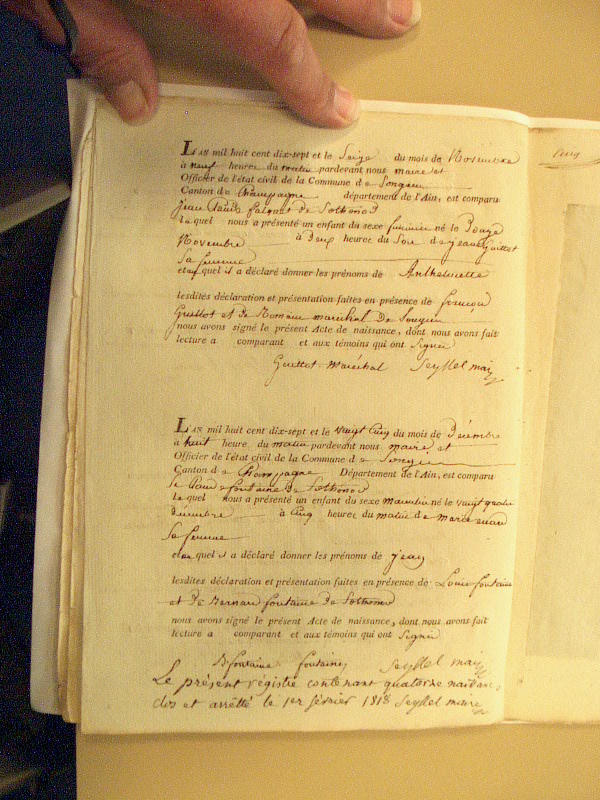 Lan mil huit cent dix-sept et le Seize du mois de Novembre
à neuf heures du matin pardevant nous maire et
Officier de l'état civil de la Commune de Songieu
Canton de Champagne département de l'Ain, est comparu
jean Claude falquet de Sothonod
lequel nous a présenté un enfant du sexe feminin né le Douze
Novembre à Deux heures du Soir de jeane Guillot
Sa femme
et auquel il a déclaré donner les prénoms de Anthelmette
lesdites déclaration et présentation faites en présence de françois
Guillot et de Romain marechal de Songieu
nous avons signé le présent Acte de naissance, dont nous avons fait
lecture a comparant et aux témoins qui ont Signés
Guillot Maréchal Seyssel maire
Lan mil huit cent dix-sept et le vingt Cinq du mois de Décembre
à huit heure du matin pardevant nous maire et
Officier de l'état civil de la Commune de Songieu
Canton de Champagne Département de l'Ain, est comparu
Claude fontaine de Sothonod
lequel nous a présenté un enfant du sexe masculin né le vingt quatre
décembre à Cinq heures du matin de marie
Sa femme
et auquel il a déclaré donner les prénoms de jean
lesdites déclaration et présentation faites en présence de Louis fontaine
et de Bernard fontaine de Sothonod
nous avons signé le présent Acte de naissance, dont nous avons fait
lecture a comparant et aux témoins qui ont Signés
Bfontaine fontaine Seyssel maire
Le présent régistre contenant quatorze naissances
clos et arrêtté le 1er février 1818 Seyssel maire